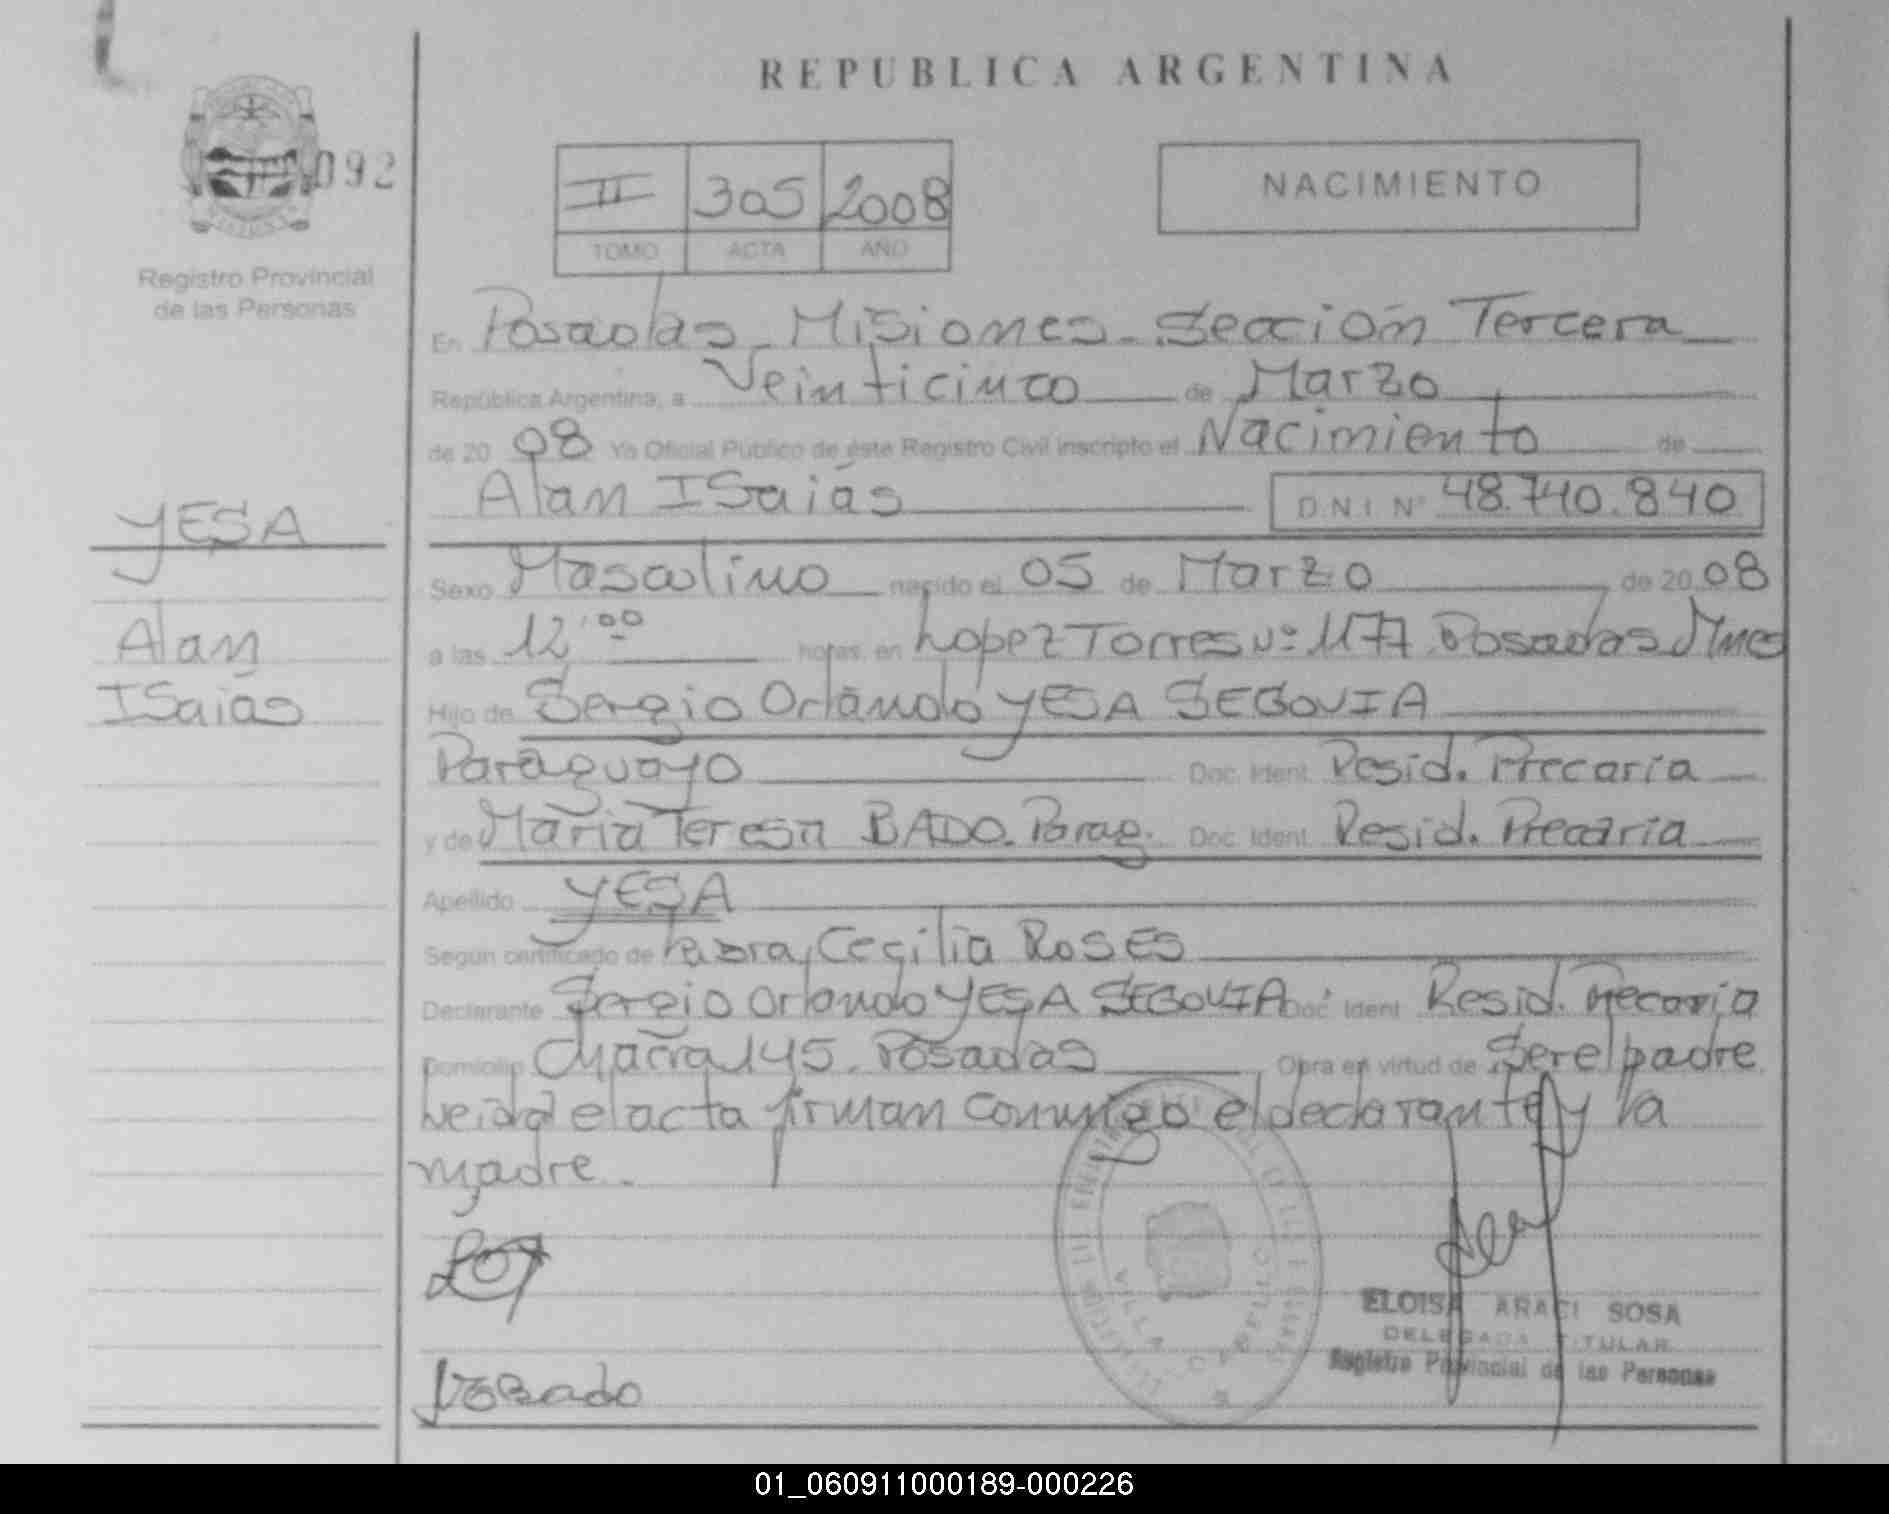 REPUBLICA ARGENTINA
092
Registro Provincial
de las Personas
II 305 2008
TOMO ACTA AÑO
NACIMIENTO
En Posadas - Misiones - Sección Tercera
República Argentina, a Veinticinco de Marzo
de 20 08 Yo Oficial Público de éste Registro Civil inscripto el Nacimiento de
Alan ISaiás D.N.I. Nº 48.740.840
YESA
Alan
ISaiás
Sexo Masculino nacido el 05 de Marzo de 20 08
a las 12:00 horas. en Lopez Torres Nº 1177 Posadas Mnes
Hijo de Sergio Orlando YESA SEGOVIA
Paraguayo Doc. Ident. Resid. Precaria
y de María Teresa BADO. Parag. Doc. Ident. Resid. Precaria
Apellido YESA
Según certificado de Cecilia ROSES
Declarante Sergio Orlando YESA SEGOVIA Doc. Ident. Resid. Precaria
Domicilio Chacra 145. Posadas Obra en virtud de Ser el padre
Leida el acta firman conmigo el declarante y la
madre.
Bado
VILLA CABELLO
ELOISA ARACI SOSA
DELEGADA TITULAR
Registro Provincial de las Personas
01_060911000189-000226